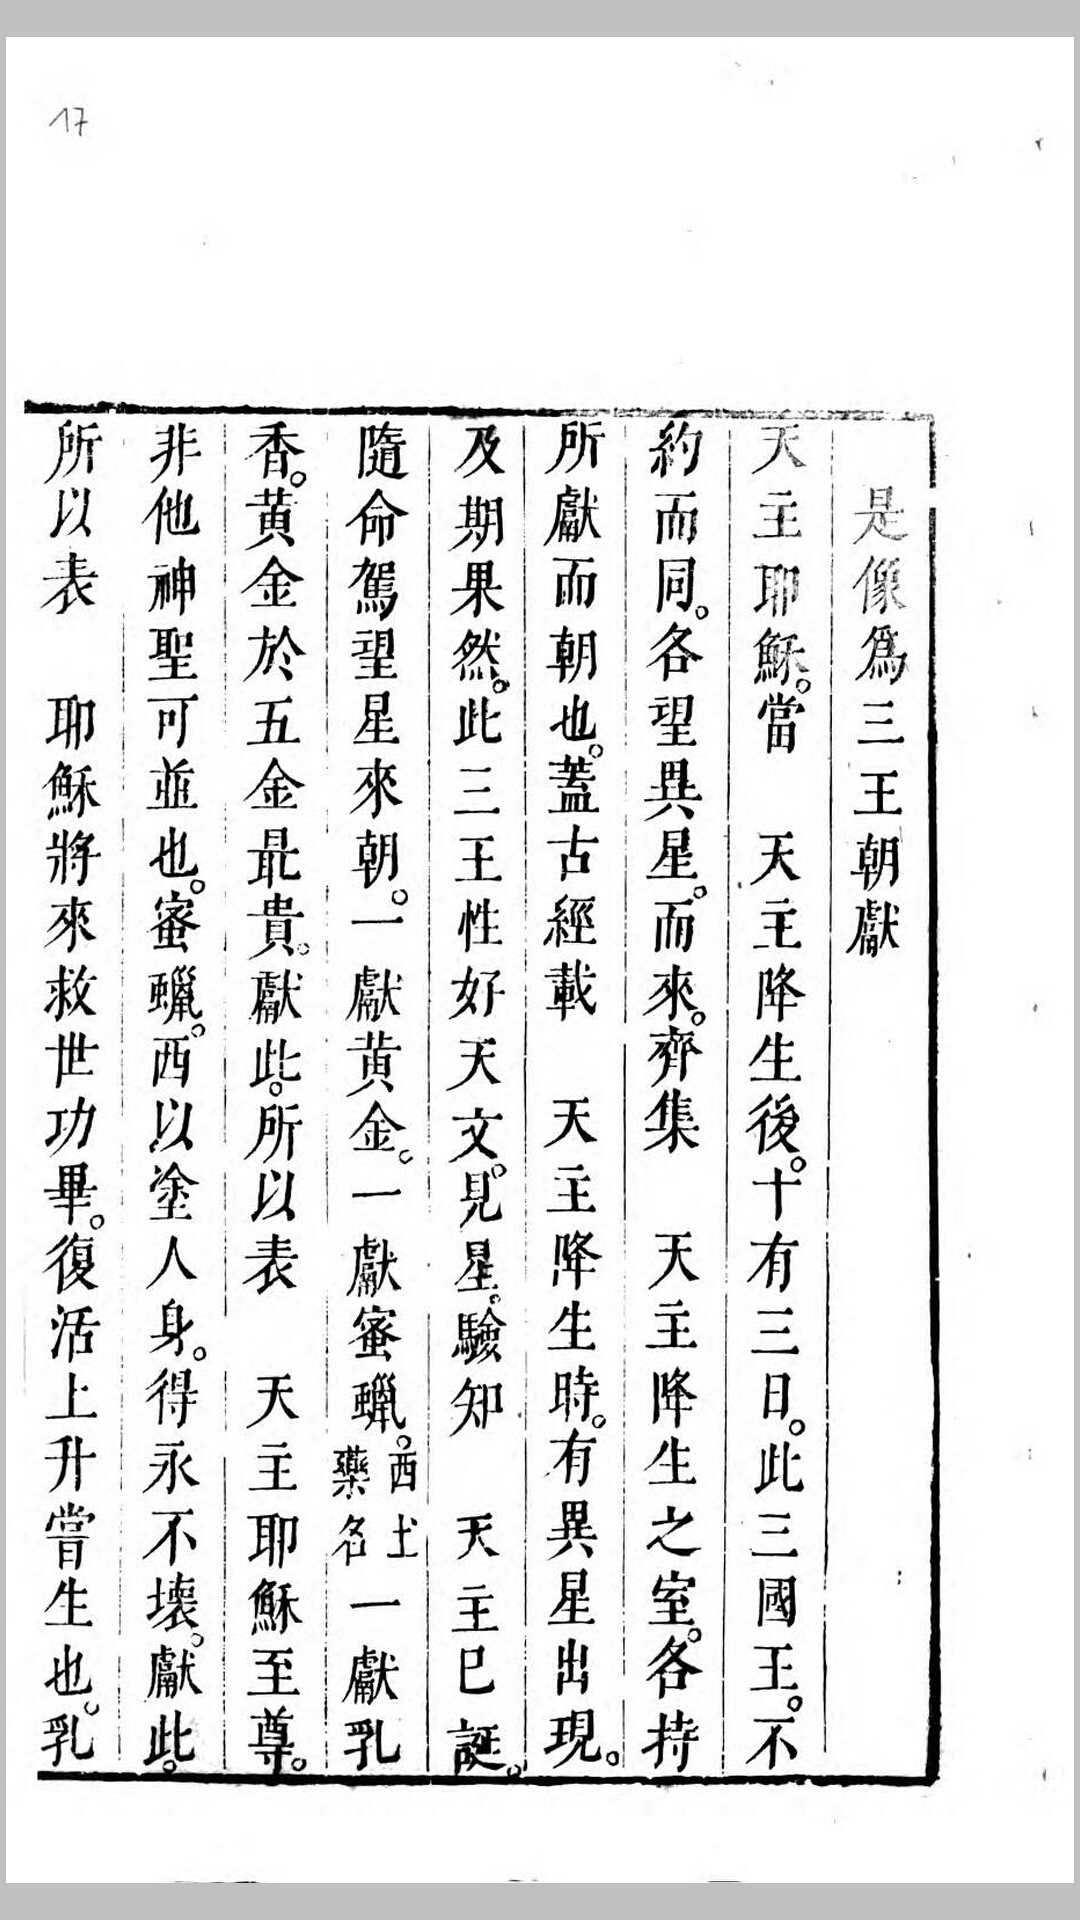 17
是像為三王朝獻
天主耶穌。當　天主降生後。十有三日。此三國王。不
約而同。各望異星。而來。齊集　天主降生之室。各持
所獻而朝也。蓋古經載　天主降生時。有異星出現。
及期果然。此三王性好天文。見星。驗知　天主已誕。
隨命駕望星來朝。一獻黃金。一獻蜜蠟。西土藥名一獻乳
香。黃金於五金最貴。獻此。所以表　天主耶穌至尊。
非他神聖可並也。蜜蠟。西以塗人身。得永不壞。獻此。
所以表　耶穌將來救世功畢。復活上升嘗生也。乳